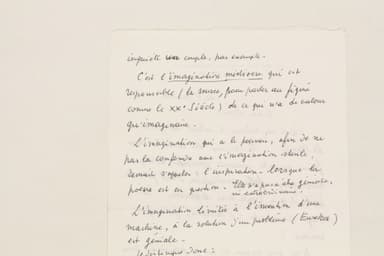 inquiète un couple, par exemple.
C'est l'imagination médiocre qui est
responsable (la source, pour parler au figuré
comme le XXe Siècle) de ce qui n'a de valeur
qu'imaginaire.
L'imagination qui a le pouvoir, afin de ne
pas la confondre avec l'imagination stérile,
devrait s'appeler : l'inspiration lorsque la
poésie est en question. Elle n'a pas à être géniale,
ni extraordinaire.
L'imagination limitée à l'invention d'une
machine, à la solution d'un problème (Eureka)
est géniale.
Je distingue donc :